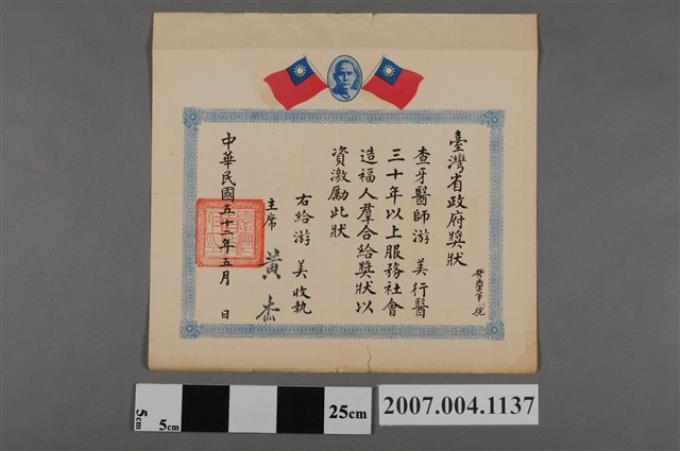 臺灣省政府獎狀
查牙醫師游 美行醫
三十年以上服務社會
造福人羣合給獎狀以
資激勵此狀
右給游 美收執
主席 黃杰
中華民國五十二年五月 日
5cm
5cm
25cm
2007.004.1137